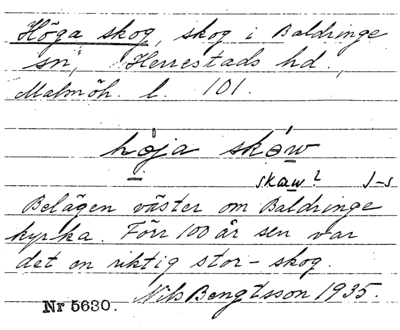 Höga skog, skog i Baldringe
sn, Herrestads hd.,
Malmöh. l. 101.
hòja sków
skaw? J-s
Belägen väster om Baldringe
kyrka. Förr 100 år sen var
det en riktig stor-skog.
Nils Bengtsson 1935.
Nr 5630.